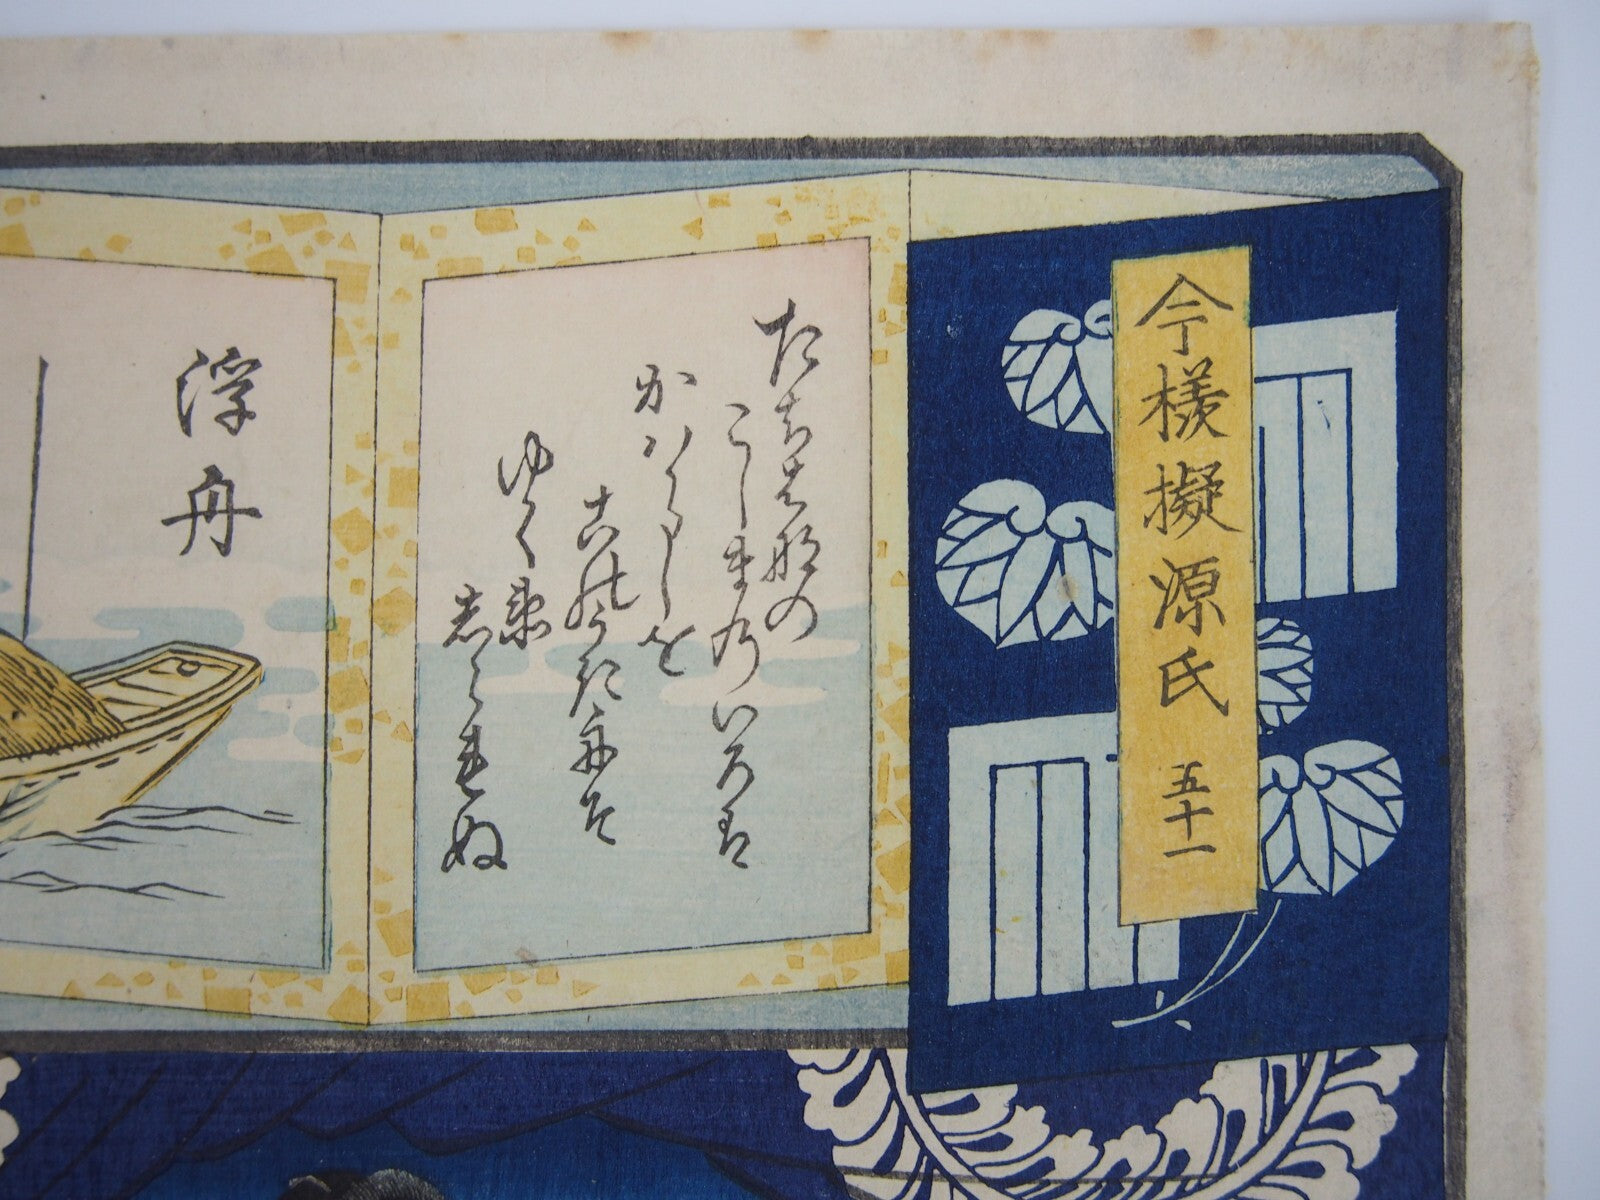 今様擬源氏 五十一
たちはなの
こしまのいろは
かハらしを
このうき舟そ
ゆくゑ
しられぬ
浮舟